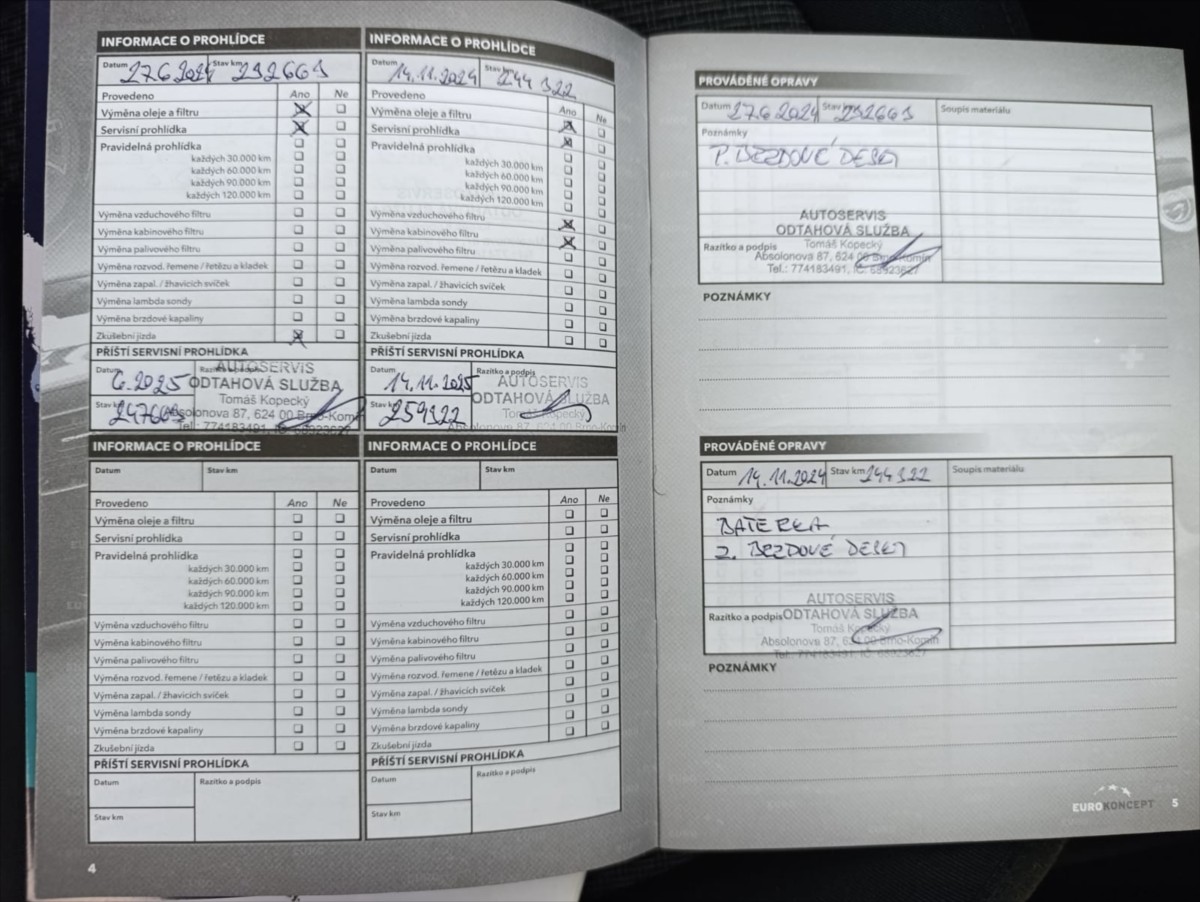 INFORMACE O PROHLÍDCE
Datum 27.6.2024 Stav km 232663
Provedeno Ano Ne
Výměna oleje a filtru
Servisní prohlídka
Pravidelná prohlídka
každých 30.000 km
každých 60.000 km
každých 90.000 km
každých 120.000 km
Výměna vzduchového filtru
Výměna kabinového filtru
Výměna palivového filtru
Výměna rozvod. řemene / řetězu a kladek
Výměna zapal. / žhavicích svíček
Výměna lambda sondy
Výměna brzdové kapaliny
Zkušební jízda
PŘÍŠTÍ SERVISNÍ PROHLÍDKA
Datum 6.2025
Razítko a podpis
Stav km 247663
AUTOSERVIS
ODTAHOVÁ SLUŽBA
Tomáš Kopecký
Absolonova 87, 624 00 Brno-Komín
INFORMACE O PROHLÍDCE
Datum 14.11.2024 Stav km 244322
Provedeno Ano Ne
Výměna oleje a filtru
Servisní prohlídka
Pravidelná prohlídka
každých 30.000 km
každých 60.000 km
každých 90.000 km
každých 120.000 km
Výměna vzduchového filtru
Výměna kabinového filtru
Výměna palivového filtru
Výměna rozvod. řemene / řetězu a kladek
Výměna zapal. / žhavicích svíček
Výměna lambda sondy
Výměna brzdové kapaliny
Zkušební jízda
PŘÍŠTÍ SERVISNÍ PROHLÍDKA
Datum 14.11.2025
Razítko a podpis
Stav km 259322
AUTOSERVIS
ODTAHOVÁ SLUŽBA
Tomáš Kopecký
Absolonova 87, 624 00 Brno-Komín
INFORMACE O PROHLÍDCE
Datum Stav km
Provedeno Ano Ne
Výměna oleje a filtru
Servisní prohlídka
Pravidelná prohlídka
každých 30.000 km
každých 60.000 km
každých 90.000 km
každých 120.000 km
Výměna vzduchového filtru
Výměna kabinového filtru
Výměna palivového filtru
Výměna rozvod. řemene / řetězu a kladek
Výměna zapal. / žhavicích svíček
Výměna lambda sondy
Výměna brzdové kapaliny
Zkušební jízda
PŘÍŠTÍ SERVISNÍ PROHLÍDKA
Datum
Razítko a podpis
Stav km
INFORMACE O PROHLÍDCE
Datum Stav km
Provedeno Ano Ne
Výměna oleje a filtru
Servisní prohlídka
Pravidelná prohlídka
každých 30.000 km
každých 60.000 km
každých 90.000 km
každých 120.000 km
Výměna vzduchového filtru
Výměna kabinového filtru
Výměna palivového filtru
Výměna rozvod. řemene / řetězu a kladek
Výměna zapal. / žhavicích svíček
Výměna lambda sondy
Výměna brzdové kapaliny
Zkušební jízda
PŘÍŠTÍ SERVISNÍ PROHLÍDKA
Datum
Razítko a podpis
Stav km
4
PROVÁDĚNÉ OPRAVY
Datum 27.6.2024 Stav km 232663 Soupis materiálu
Poznámky
P. BRZDOVÉ DESKY
AUTOSERVIS
ODTAHOVÁ SLUŽBA
Razítko a podpis Tomáš Kopecký
Absolonova 87, 624 00 Brno-Komín
Tel.: 774183491, IČ: 68923627
POZNÁMKY
PROVÁDĚNÉ OPRAVY
Datum 14.11.2024 Stav km 244322 Soupis materiálu
Poznámky
BATERKA
Z. BRZDOVÉ DESKY
AUTOSERVIS
Razítko a podpis ODTAHOVÁ SLUŽBA
Tomáš Kopecký
Absolonova 87, 624 00 Brno-Komín
Tel.: 774183491, IČ: 68923627
POZNÁMKY
EUROKONCEPT 5